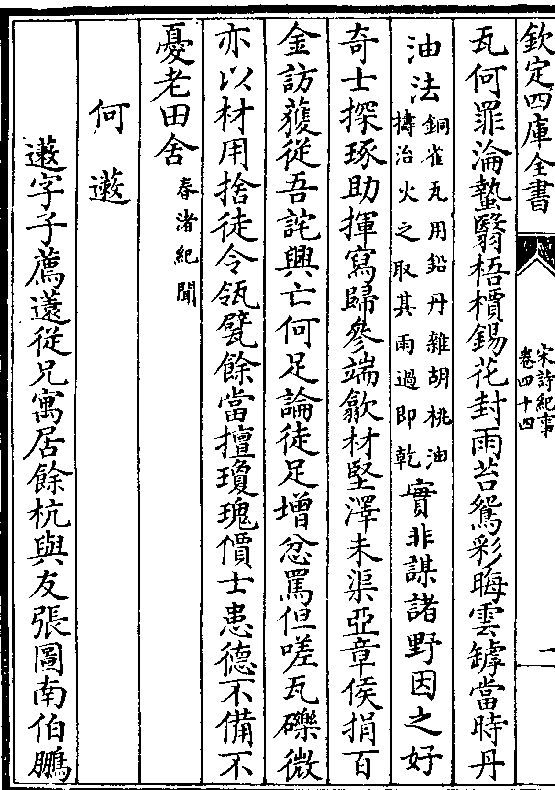 欽定四庫全書
宋詩紀事
卷四十四
一
瓦何罪淪蟄翳梧檟錫花封雨苔鴛彩晦雲罅當時丹
油法銅雀瓦用鉛丹雜胡桃油
擣治火之取其雨過即乾實非謀諸野因之好
奇士探琢助揮寫歸參端歙材堅澤未渠亞章侯捐百
金訪獲從吾詫興亡何足論徒足增忿罵但嗟瓦礫微
亦以材用捨徒令瓴甓餘當擅瓊瑰價士患德不備不
憂老田舍春渚紀聞
何薳
薳字子薦薳從兄寓居餘杭與友張圖南伯鵬